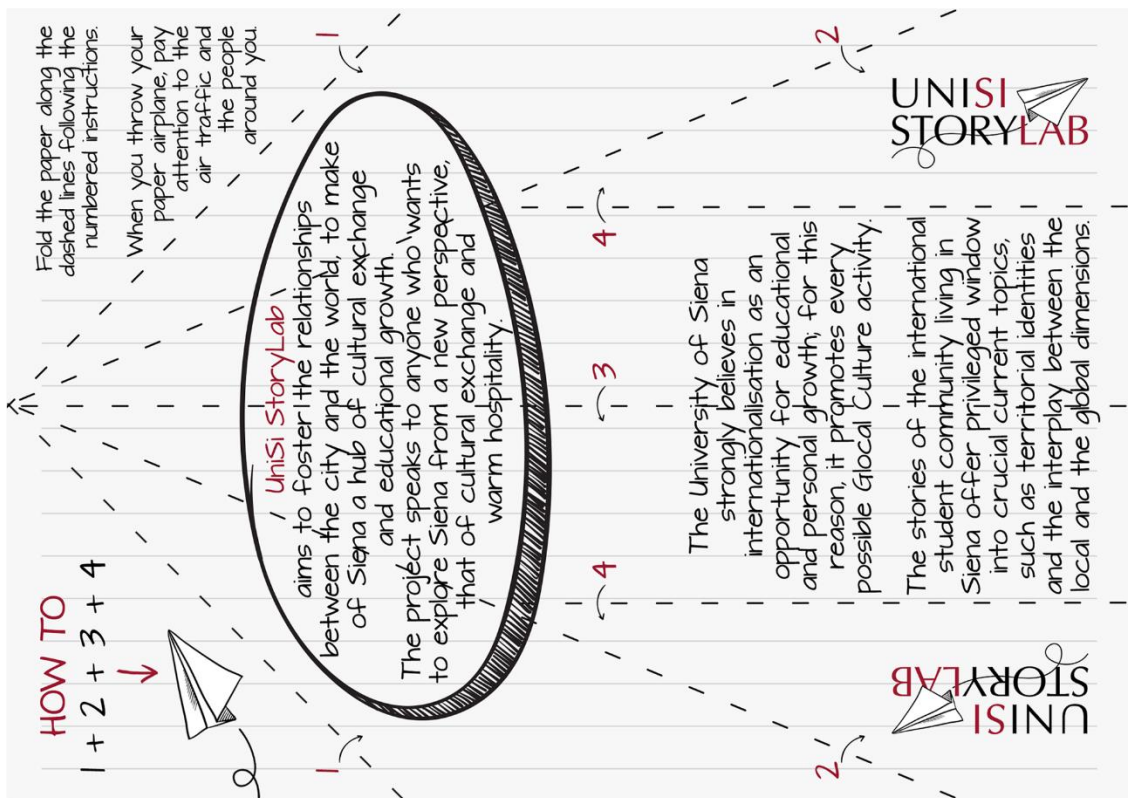 HOW TO
1 + 2 + 3 + 4
Fold the paper along the
dashed lines following the
numbered instructions.
When you throw your
paper airplane, pay
attention to the
air traffic and
the people
around you.
1
1
UniSi StoryLab
aims to foster the relationships
between the city and the world, to make
of Siena a hub of cultural exchange
and educational growth.
The project speaks to anyone who wants
to explore Siena from a new perspective,
that of cultural exchange and
warm hospitality.
4
3
4
The University of Siena
strongly believes in
internationalisation as an
opportunity for educational
and personal growth; for this
reason, it promotes every
possible Glocal Culture activity.
The stories of the international
student community living in
Siena offer privileged window
into crucial current topics,
such as territorial identities
and the interplay between the
local and the global dimensions.
2
2
UNISI
STORYLAB
UNISI
STORYLAB